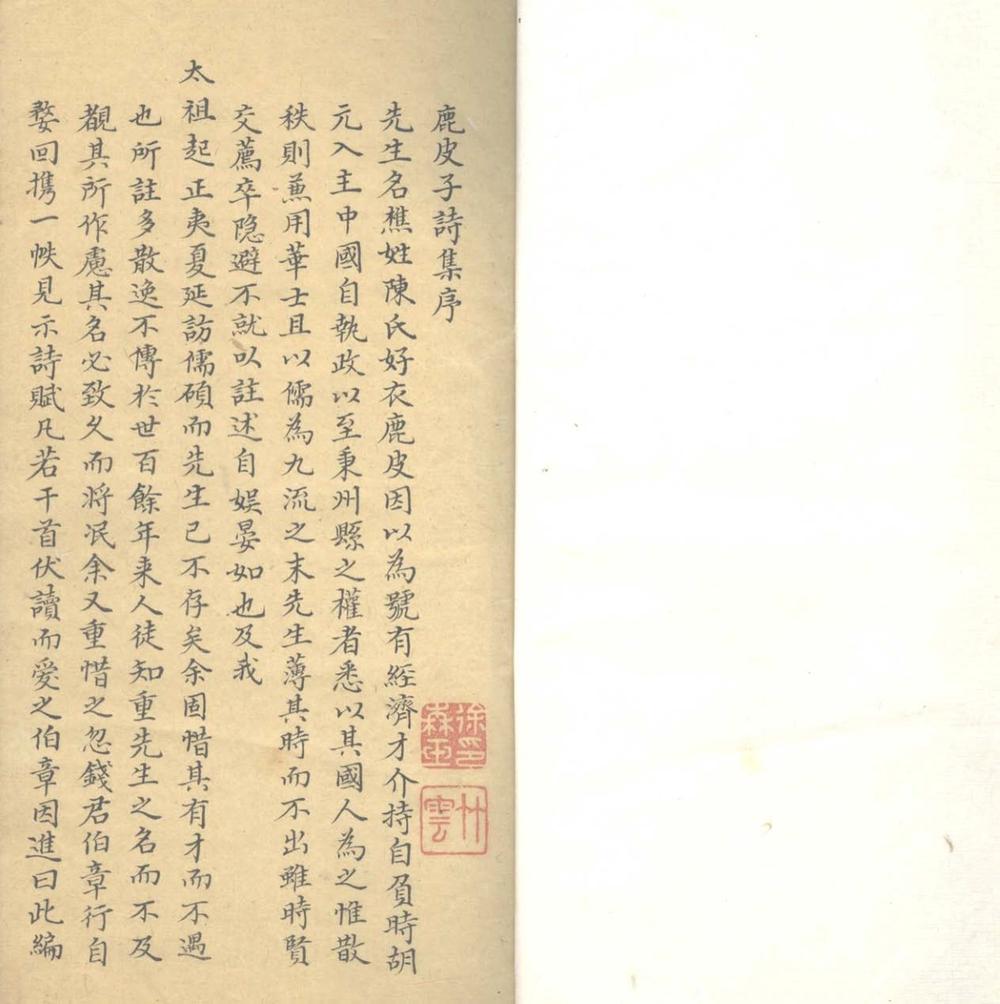 鹿皮子詩集序
先生名樵姓陳氏好衣鹿皮因以為號有經濟才介持自負時胡
元入主中國自執政以至秉州縣之權者悉以其國人為之惟散
秩則蒹用華士且以儒為九流之末先生薄其時而不出雖時賢
交薦卒隐避不就以註述自娯晏如也及我
太祖起正夷夏延訪儒碩而先生已不存矣余固惜其有才而不遇
也所註多散逸不傳於世百餘年来人徒知重先生之名而不及
覩其所作慮其名必致久而将泯余又重惜之忽錢君伯章行自
婺回携一帙見示詩賦凡若干首伏讀而愛之伯章因進曰此編
徐森玉印
竹雲